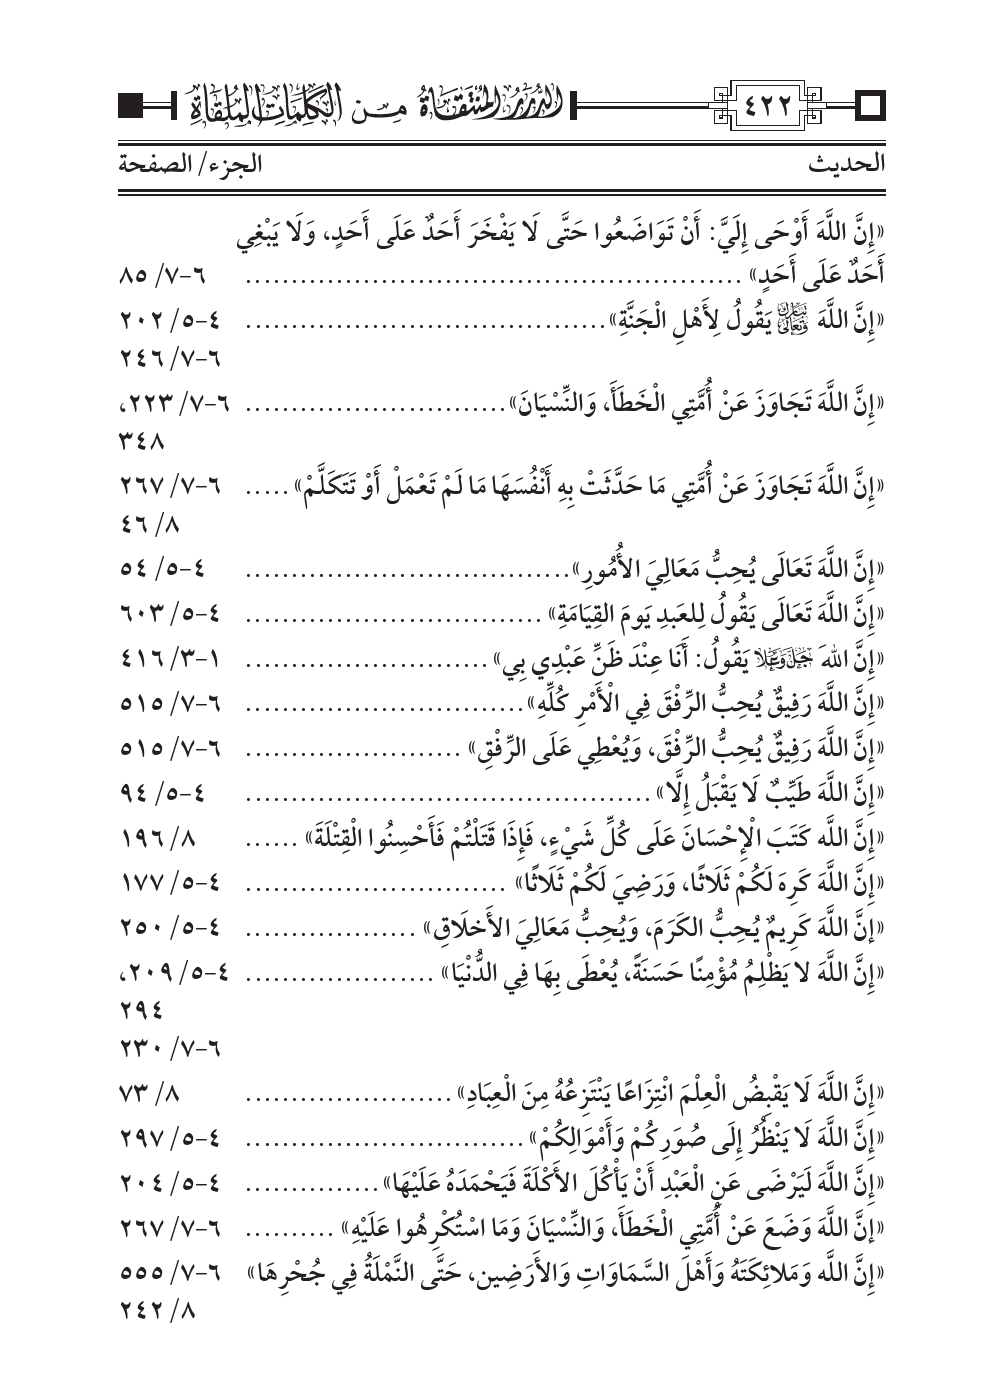 ٤٢٢ الدرر المنتقاة من الكلمات الملقاة
الحديث الجزء/ الصفحة
«إِنَّ اللَّهَ أَوْحَى إِلَيَّ: أَنْ تَوَاضَعُوا حَتَّى لَا يَفْخَرَ أَحَدٌ عَلَى أَحَدٍ، وَلَا يَبْغِي
أَحَدٌ عَلَى أَحَدٍ» ........................................ ٦-٧/ ٨٥
«إِنَّ اللَّهَ تَبَارَكَ وَتَعَالَى يَقُولُ لِأَهْلِ الْجَنَّةِ» .............................. ٤-٥/ ٢٠٢
٦-٧/ ٢٤٦
«إِنَّ اللَّهَ تَجَاوَزَ عَنْ أُمَّتِي الْخَطَأَ، وَالنِّسْيَانَ» ............................ ٦-٧/ ٢٢٣،
٣٤٨
«إِنَّ اللَّهَ تَجَاوَزَ عَنْ أُمَّتِي مَا حَدَّثَتْ بِهِ أَنْفُسَهَا مَا لَمْ تَعْمَلْ أَوْ تَتَكَلَّمْ» ..... ٦-٧/ ٢٦٧
٨/ ٤٦
«إِنَّ اللَّهَ تَعَالَى يُحِبُّ مَعَالِيَ الأُمُورِ» ................................... ٤-٥/ ٥٤
«إِنَّ اللَّهَ تَعَالَى يَقُولُ لِلعَبدِ يَومَ القِيَامَةِ» ................................ ٤-٥/ ٦٠٣
«إِنَّ اللهَ جَلَّ وَعَلَا يَقُولُ: أَنَا عِنْدَ ظَنِّ عَبْدِي بِي» .......................... ١-٣/ ٤١٦
«إِنَّ اللَّهَ رَفِيقٌ يُحِبُّ الرِّفْقَ فِي الْأَمْرِ كُلِّهِ» .............................. ٦-٧/ ٥١٥
«إِنَّ اللَّهَ رَفِيقٌ يُحِبُّ الرِّفْقَ، وَيُعْطِي عَلَى الرِّفْقِ» ....................... ٦-٧/ ٥١٥
«إِنَّ اللَّهَ طَيِّبٌ لَا يَقْبَلُ إِلَّا» ........................................... ٤-٥/ ٩٤
«إِنَّ اللَّه كَتَبَ الْإِحْسَانَ عَلَى كُلِّ شَيْءٍ، فَإِذَا قَتَلْتُمْ فَأَحْسِنُوا الْقِتْلَةَ» ...... ٨/ ١٩٦
«إِنَّ اللَّهَ كَرِهَ لَكُمْ ثَلَاثًا، وَرَضِيَ لَكُمْ ثَلَاثًا» ............................ ٤-٥/ ١٧٧
«إِنَّ اللَّهَ كَرِيمٌ يُحِبُّ الكَرَمَ، وَيُحِبُّ مَعَالِيَ الأَخلَاقِ» ................... ٤-٥/ ٢٥٠
«إِنَّ اللَّهَ لا يَظْلِمُ مُؤْمِنًا حَسَنَةً، يُعْطَى بِهَا فِي الدُّنْيَا» ..................... ٤-٥/ ٢٠٩،
٢٩٤
٦-٧/ ٢٣٠
«إِنَّ اللَّهَ لَا يَقْبِضُ الْعِلْمَ انْتِزَاعًا يَنْتَزِعُهُ مِنَ الْعِبَادِ» ...................... ٨/ ٧٣
«إِنَّ اللَّهَ لَا يَنْظُرُ إِلَى صُوَرِكُمْ وَأَمْوَالِكُمْ» .............................. ٤-٥/ ٢٩٧
«إِنَّ اللَّهَ لَيَرْضَى عَنِ الْعَبْدِ أَنْ يَأْكُلَ الأَكْلَةَ فَيَحْمَدَهُ عَلَيْهَا» ............... ٤-٥/ ٢٠٤
«إِنَّ اللَّهَ وَضَعَ عَنْ أُمَّتِي الْخَطَأَ، وَالنِّسْيَانَ وَمَا اسْتُكْرِهُوا عَلَيْهِ» .......... ٦-٧/ ٢٦٧
«إِنَّ اللَّه وَمَلائِكَتَهُ وَأَهْلَ السَّمَاوَاتِ وَالأَرَضِين، حَتَّى النَّمْلَةُ فِي جُحْرِهَا» ٦-٧/ ٥٥٥
٨/ ٢٤٢